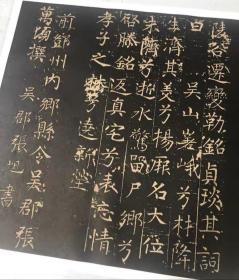 陵谷遷變勒銘貞琰其詞
曰吳山峩峨兮林降
生濟其美兮揚厥名大位
未躋兮逝水驚留尸鄉兮
啓滕銘返真宅兮表忘情
孝子之兮達新塋
前鄧州内鄉縣令吳郡張
萬頃撰
吳郡張旭書